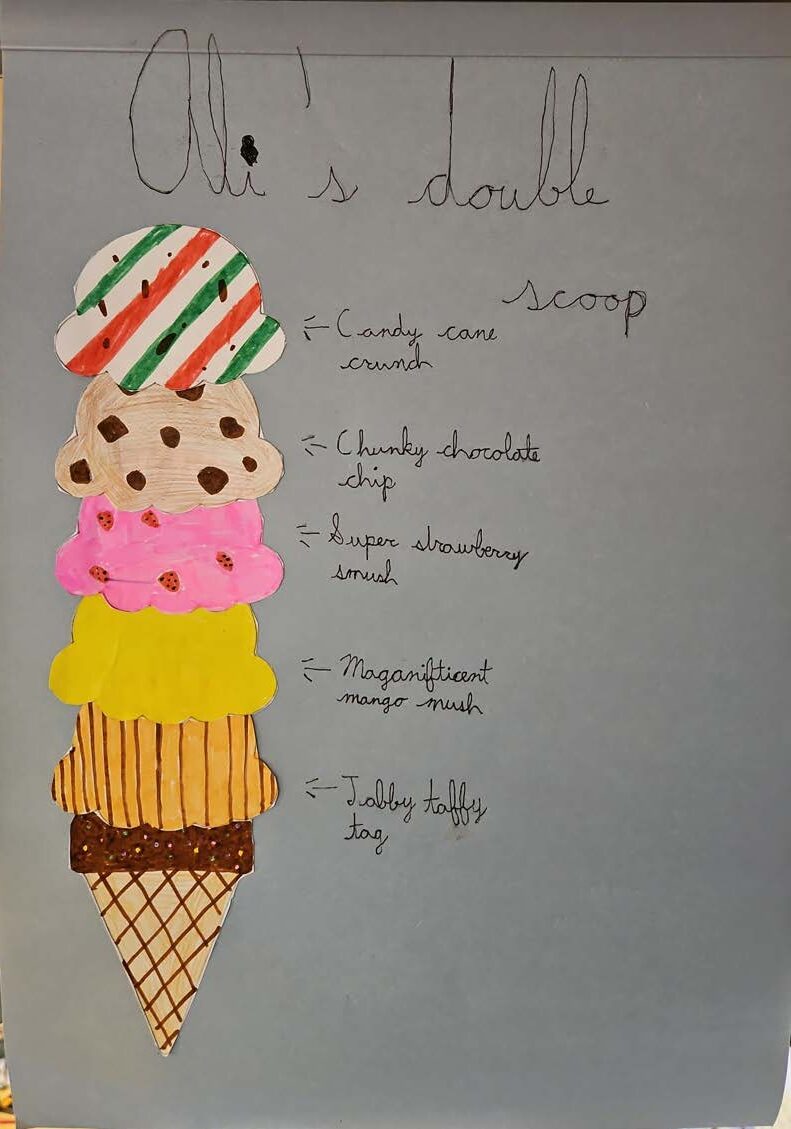 Ali's double
scoop
Candy cane
crunch
Chunky chocolate
chip
Super strawberry
smush
Maganifticent
mango mush
Tabby taffy
tag